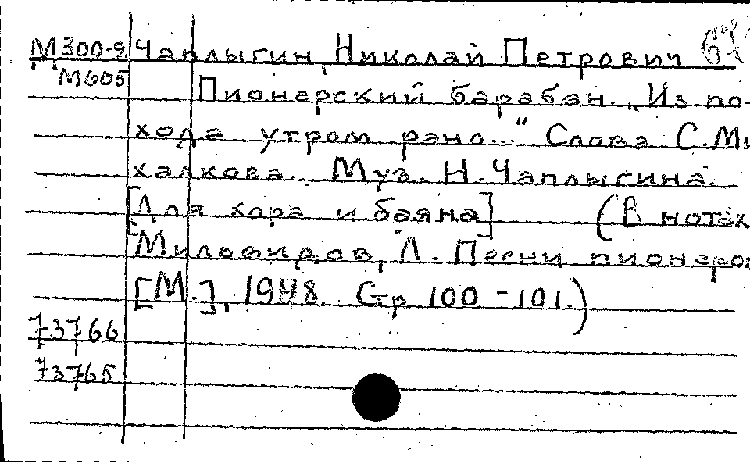 М300-2 Чаплыгин, Николай Петрович
М605 Пионерский барабан. "Из по-
хода утром рано..." Слова С. Ми
халкова. Муз. Н. Чаплыгина.
[Для хора и баяна] (В нотах
Милофиров, Л. Песни пионеров
[М.], 1948. Стр 100-101.)
73766
73765